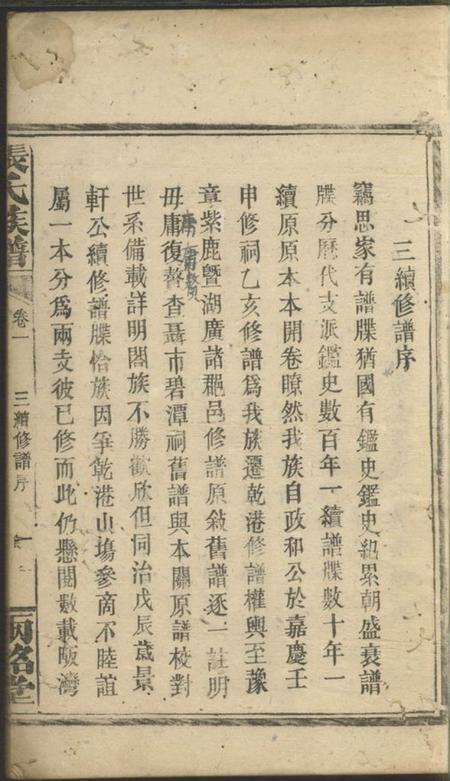 三續修譜序
竊思家有譜牒猶國有鑑史鑑史紐累朝盛衰譜
牒分歷代支派鑑史數百年一續譜牒數十年一
續原原本本開卷瞭然我族自政和公於嘉慶壬
申修祠乙亥修譜爲我族遷乾港修譜權輿至豫
章紫鹿暨湖廣諸郡邑修譜原敘舊譜逐一註明
毋庸復贅查聶市碧潭祠舊譜與本關原譜校對
世系備載詳明閤族不勝歡欣但同治戊辰歲景
軒公續修譜牒恰族因爭乾港山塲參商不睦誼
屬一本分爲兩支彼已修而此仍懸閣數載陂灣
張氏族譜
卷一
三續修譜序
一
銘堂